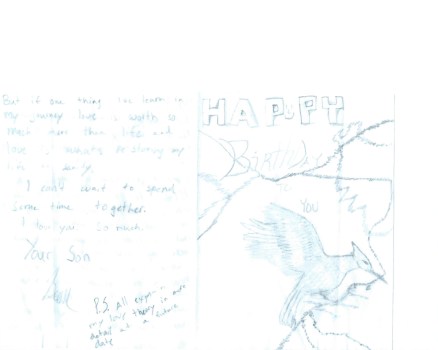 But if one thing I've learn in
my journey love is worth so
much more than life and
love is what's
life
I can't wait to spend
some time together.
I love you so much.
Your Son
P.S. All explain
my love theory in more
detail at a future
date
HAPPY
Birthday
TO
YOU